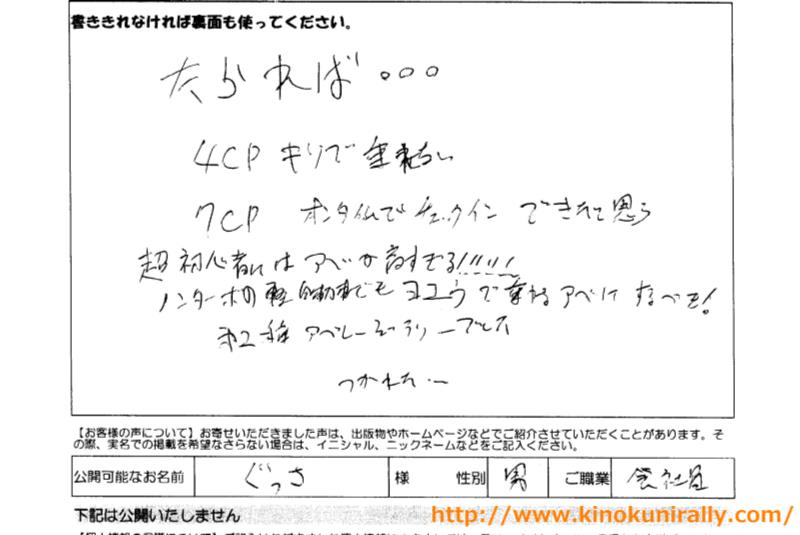 書ききれなければ裏面も使ってください。
たられば。。。
4CP キリで
7CP オンタイムでチェックイン できたと思う
超初心者にはアベが高すぎる!!!!!
ノンターボの軽自動車でもヨユウで乗れるアベにすべき!
アベレージラリーでした
つかれた…
【お客様の声について】お寄せいただきました声は、出版物やホームページなどでご紹介させていただくことがあります。そ
の際、実名での掲載を希望なさらない場合は、イニシャル、ニックネームなどをご記入ください。
公開可能なお名前 ぐっさ 様 性別 男 ご職業 会社員
下記は公開いたしません
http://www.kinokunirally.com/